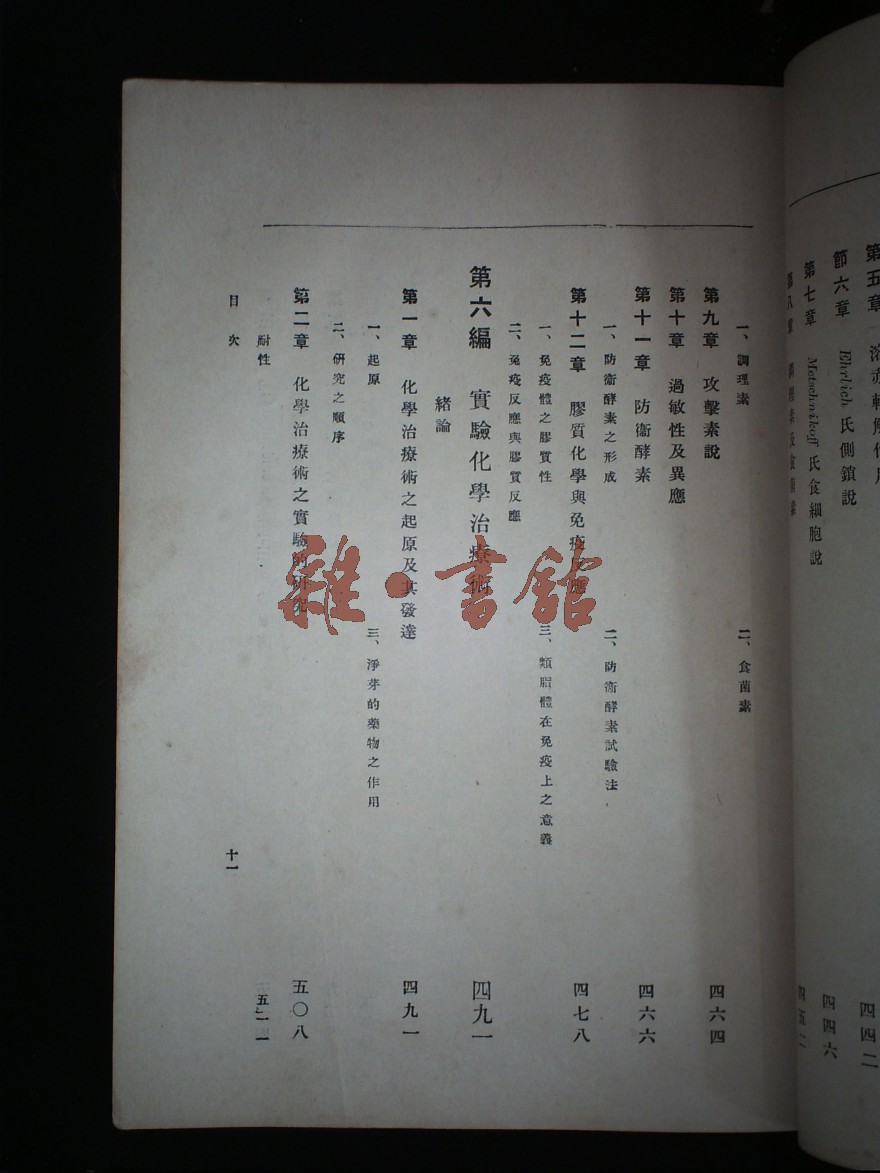 節六章 Ehrlich 氏側鎖說 四四六
第七章 Metschnikoff 氏食細胞說
一、調理素 二、食菌素
第九章 攻擊素說 四六四
第十章 過敏性及異應
第十一章 防衞酵素 四六六
一、防衞酵素之形成 二、防衞酵素試驗法
第十二章 膠質化學與免疫反應 四七八
一、免疫體之膠質性 三、類脂體在免疫上之意義
二、免疫反應與膠質反應
第六編 實驗化學治療術 四九一
緒論
第一章 化學治療術之起原及其發達 四九一
一、起原 三、淨芽的藥物之作用
二、研究之順序
第二章 化學治療術之實驗的研究 五〇八
耐性
目次 十一
雜·書館